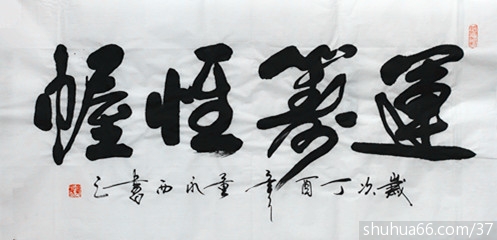 運籌帷幄
歲次丁酉年董永西書之
shuhua66.com/37